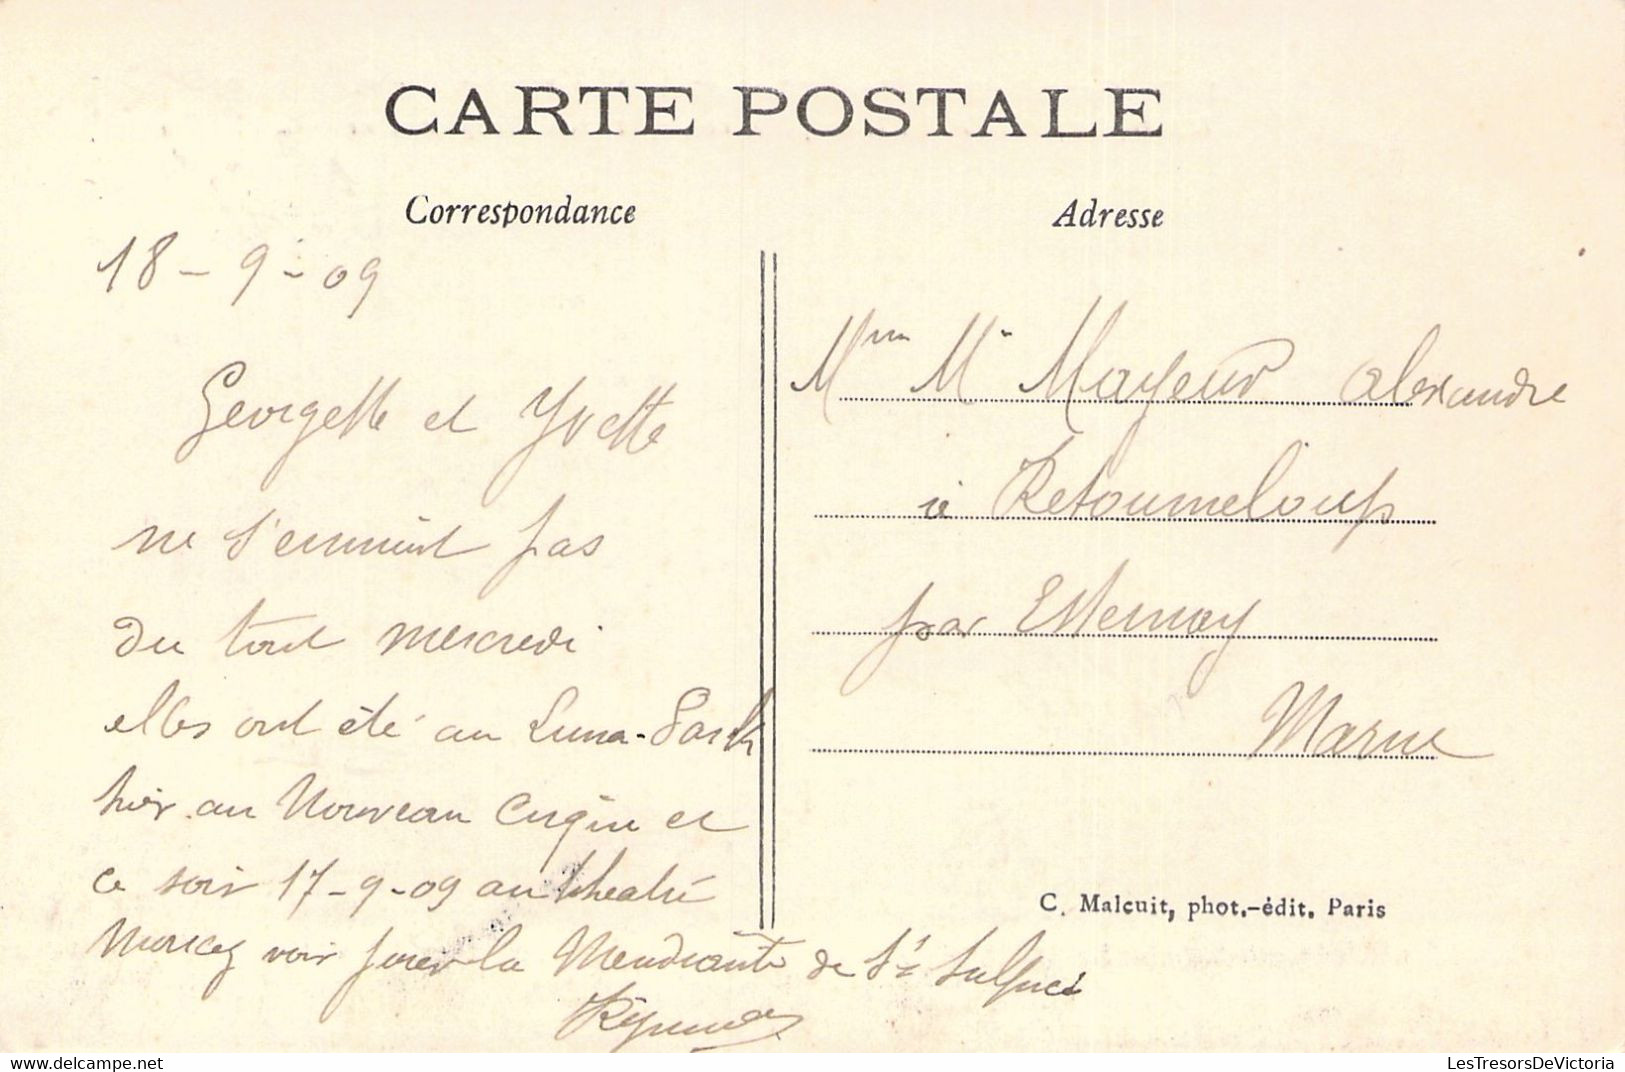 CARTE POSTALE
Correspondance
Adresse
18-9-09
Georgette et Yvette
ne s'ennuient pas
du tout mercredi
elles ont été au Luna-Park
hier au Nouveau Cirque et
ce soir 17-9-09 au theatre
Moncey voir jouer la Mendiante de St Sulpice
Mme Mr Mayeur Alexandre
à Retourneloup
par Esternay
Marne
C. Malcuit, phot.-édit. Paris
LesTresorsDeVictoria